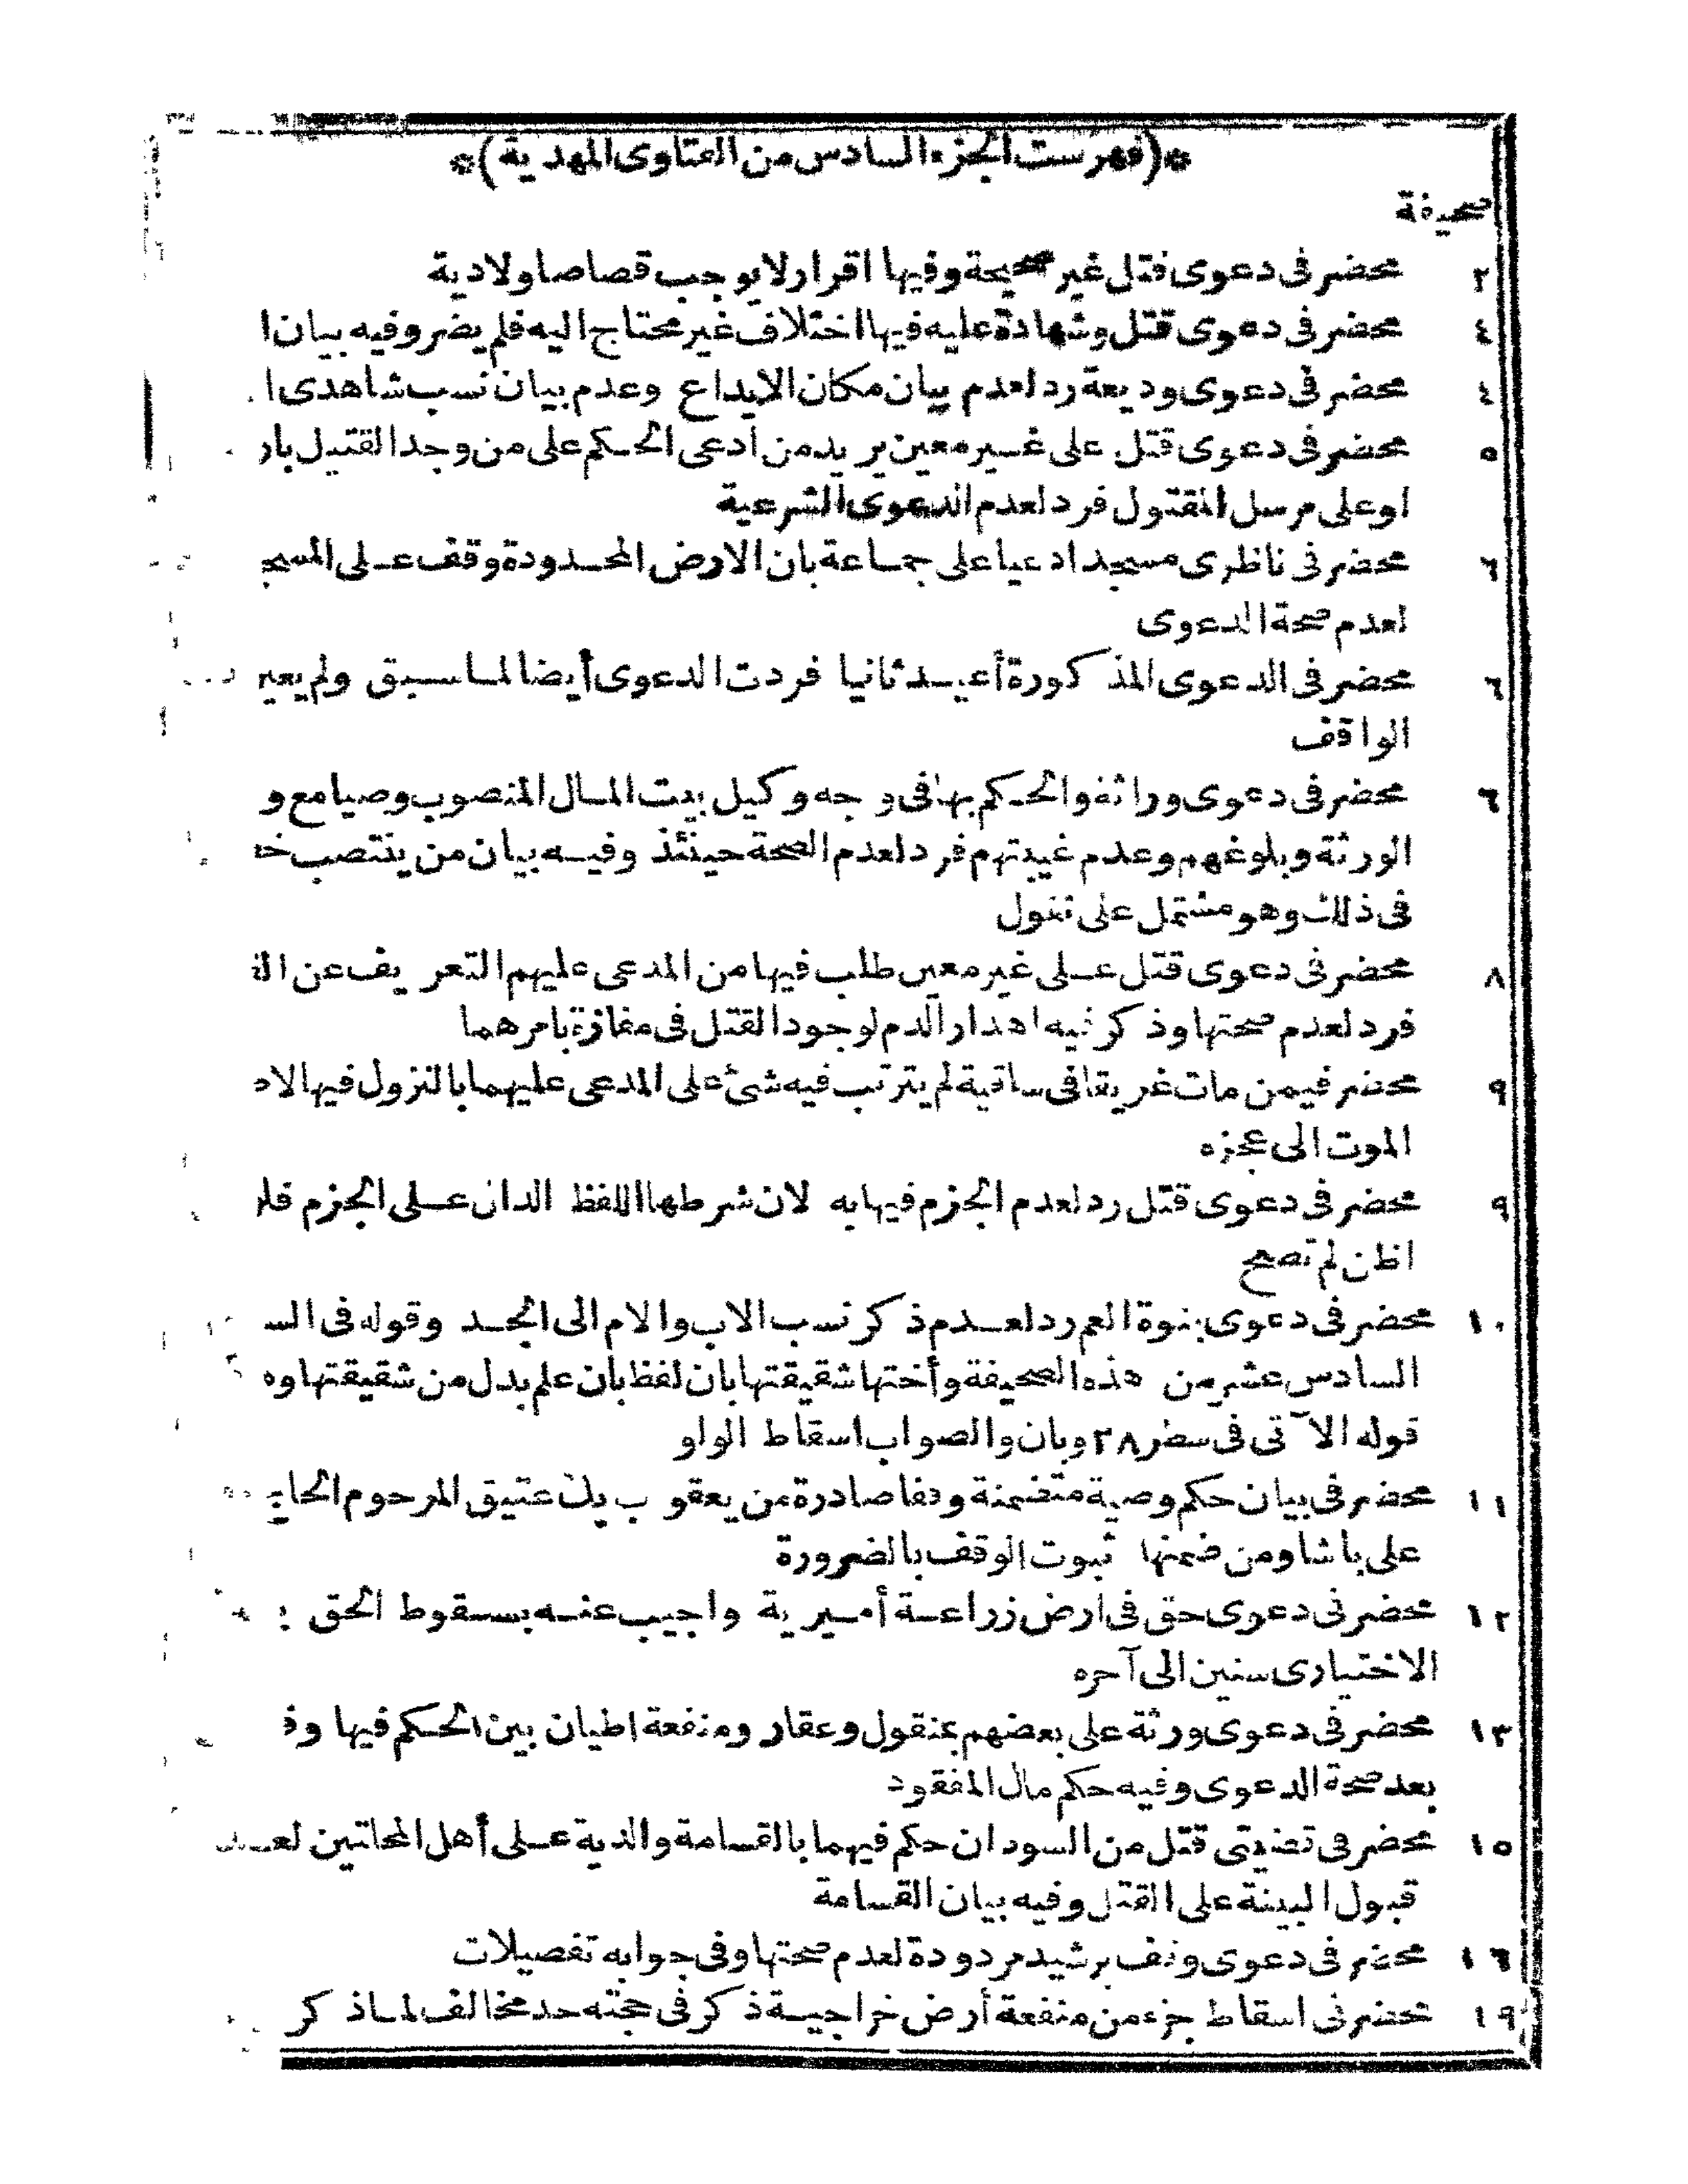 *(فهرست الجزء السادس من الفتاوى المهدية)*
صحيفة
٢ محضر فى دعوى قتل غير صحيحة وفيها اقرار لا يوجب قصاصا ولا دية
٤ محضر فى دعوى قتل وشهادة عليه فيها اختلاف غير محتاج اليه فلم يضر وفيه بيان
٤ محضر فى دعوى وديعة رد لعدم بيان مكان الايداع وعدم بيان نسب شاهدى
٥ محضر فى دعوى قتل على غير معين يريد من ادعى الحكم على من وجد القتيل
او على مرسل المقتول فرد لعدم الدعوى الشرعية
٦ محضر فى ناظرى مسجد ادعيا على جماعة بان الارض المحدودة وقف على
لعدم صحة الدعوى
٦ محضر فى الدعوى المذكورة أعيد ثانيا فردت الدعوى أيضا لما سبق ولم
الواقف
٦ محضر فى دعوى وراثة والحكم بها فى وجه وكيل بيت المال المنصوب وصيا مع
الورثة وبلوغهم وعدم غيبتهم فرد لعدم الصحة حينئذ وفيه بيان من ينتصب
فى ذلك وهو مشتمل على نقول
٨ محضر فى دعوى قتل على غير معين طلب فيها من المدعى عليهم التعريف عن
فرد لعدم صحتها وذكر فيه اهدار الدم لوجود القتل فى مفازة بامرهما
٩ محضر فيمن مات غريقا فى ساقية لم يترتب فيه شئ على المدعى عليهما بالنزول فيها
الموت الى عجزه
٩ محضر فى دعوى قتل رد لعدم الجزم فيها به لان شرطها اللفظ الدال على الجزم
اظن لم تصح
١٠ محضر فى دعوى بنوة العم رد لعدم ذكر نسب الاب والام الى الجد وقوله فى
السادس عشر من هذه الصحيفة وأختها شقيقتها بان لفظ بان علم بدل من شقيقتها
قوله الآتى فى سطر ٢٨ وبان والصواب اسقاط الواو
١١ محضر فى بيان حكم وصية متضمنة وقفا صادرة من يعقوب بيك عتيق المرحوم الحاج
على باشا ومن ضمنها ثبوت الوقف بالضرورة
١٢ محضر فى دعوى حق فى ارض زراعة أميرية واجيب عنه بسقوط الحق
الاختيارى سنين الى آخره
١٣ محضر فى دعوى ورثة على بعضهم بمنقول وعقار ومنفعة اطيان بين الحكم فيها
بعد صحة الدعوى وفيه حكم مال المفقود
١٥ محضر فى قضيتى قتل من السودان حكم فيهما بالقسامة والدية على أهل المحلتين
قبول البينة على القتل وفيه بيان القسامة
١٦ محضر فى دعوى وقف برشيد مردودة لعدم صحتها وفى جوابه تفصيلات
١٩ محضر فى اسقاط جزء من منفعة أرض خراجية ذكر فى حجته حد مخالف لما ذكر